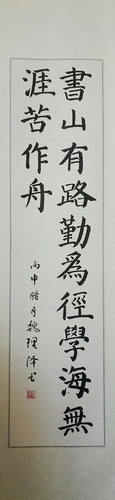 書山有路勤為徑學海無
涯苦作舟
丙申腊月魏理泽书